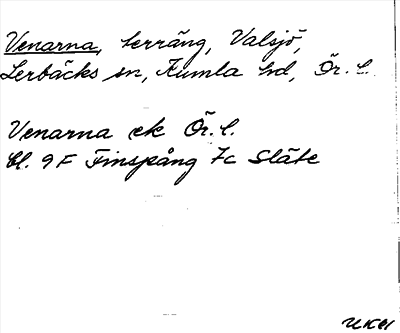 Venarna, terräng, Valsjö,
Lerbäcks sn, Kumla hd, Ör. l.
Venarna ek Ör. l.
bl. 9F Finspång 7c Släte